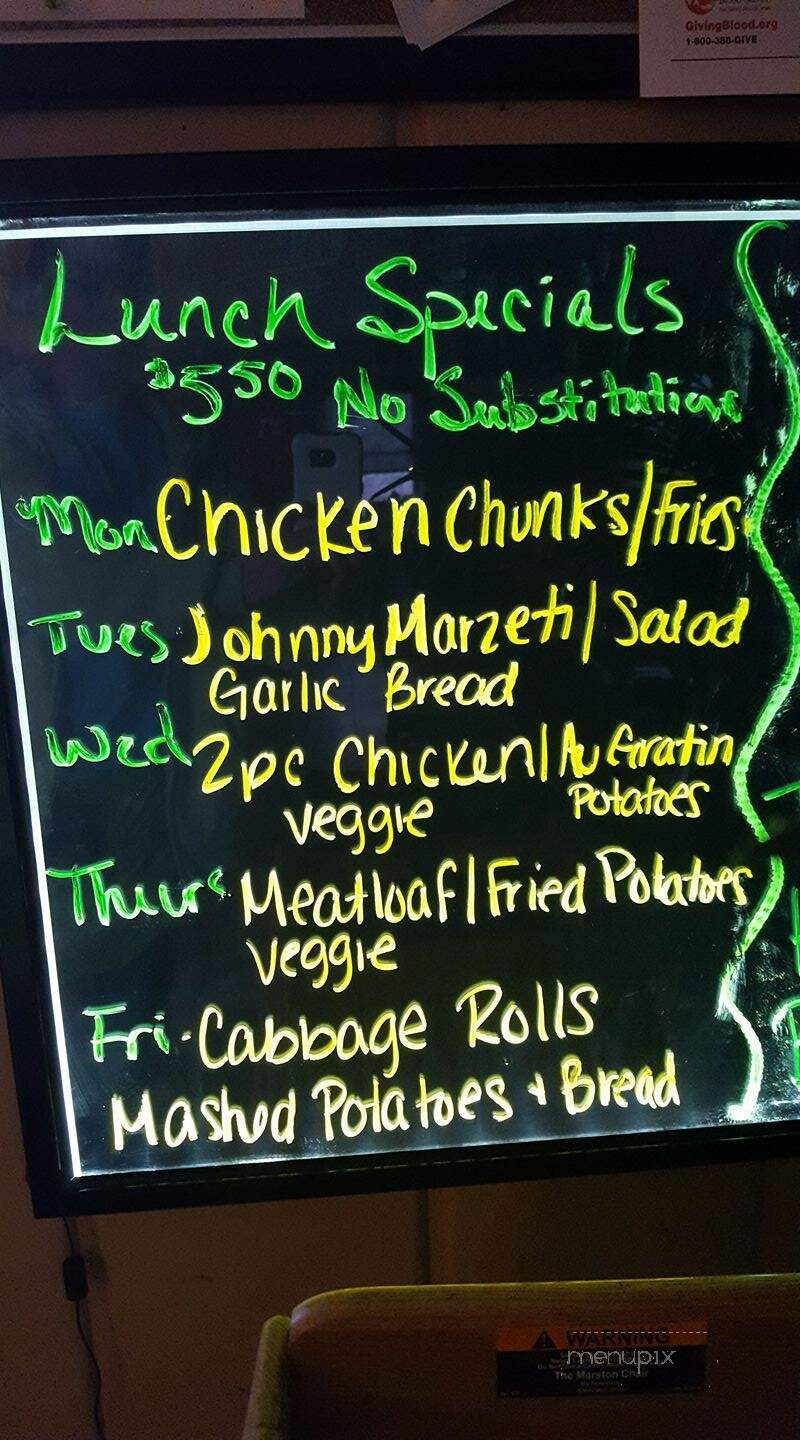 GivingBlood.org
1-800-388-GIVE
Lunch Specials
$5.50 No Substitutions
Mon Chicken Chunks/Fries
Tues Johnny Marzeti/Salad
Garlic Bread
Wed 2pc Chicken/Au Gratin
Potatoes
veggie
Thurs Meatloaf/Fried Potatoes
veggie
Fri. Cabbage Rolls
Mashed Potatoes + Bread
WARNING
menupix
The Marston Chair